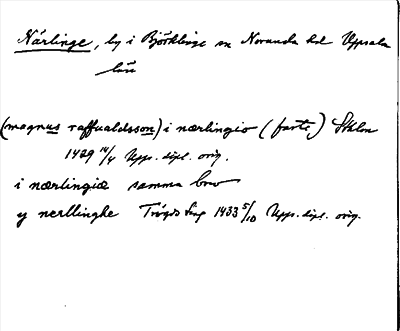 Närlinge, by i Björklinge sn Norunda hd Uppsala
län
(magnus raffualdsson) i nærlingio (faste) Sthlm
1429 14/4 Upps. dipl. orig.
i nærlingiæ samma brev
y nerllinghe Trögds ting 1433 5/10 Upps. dipl. orig.